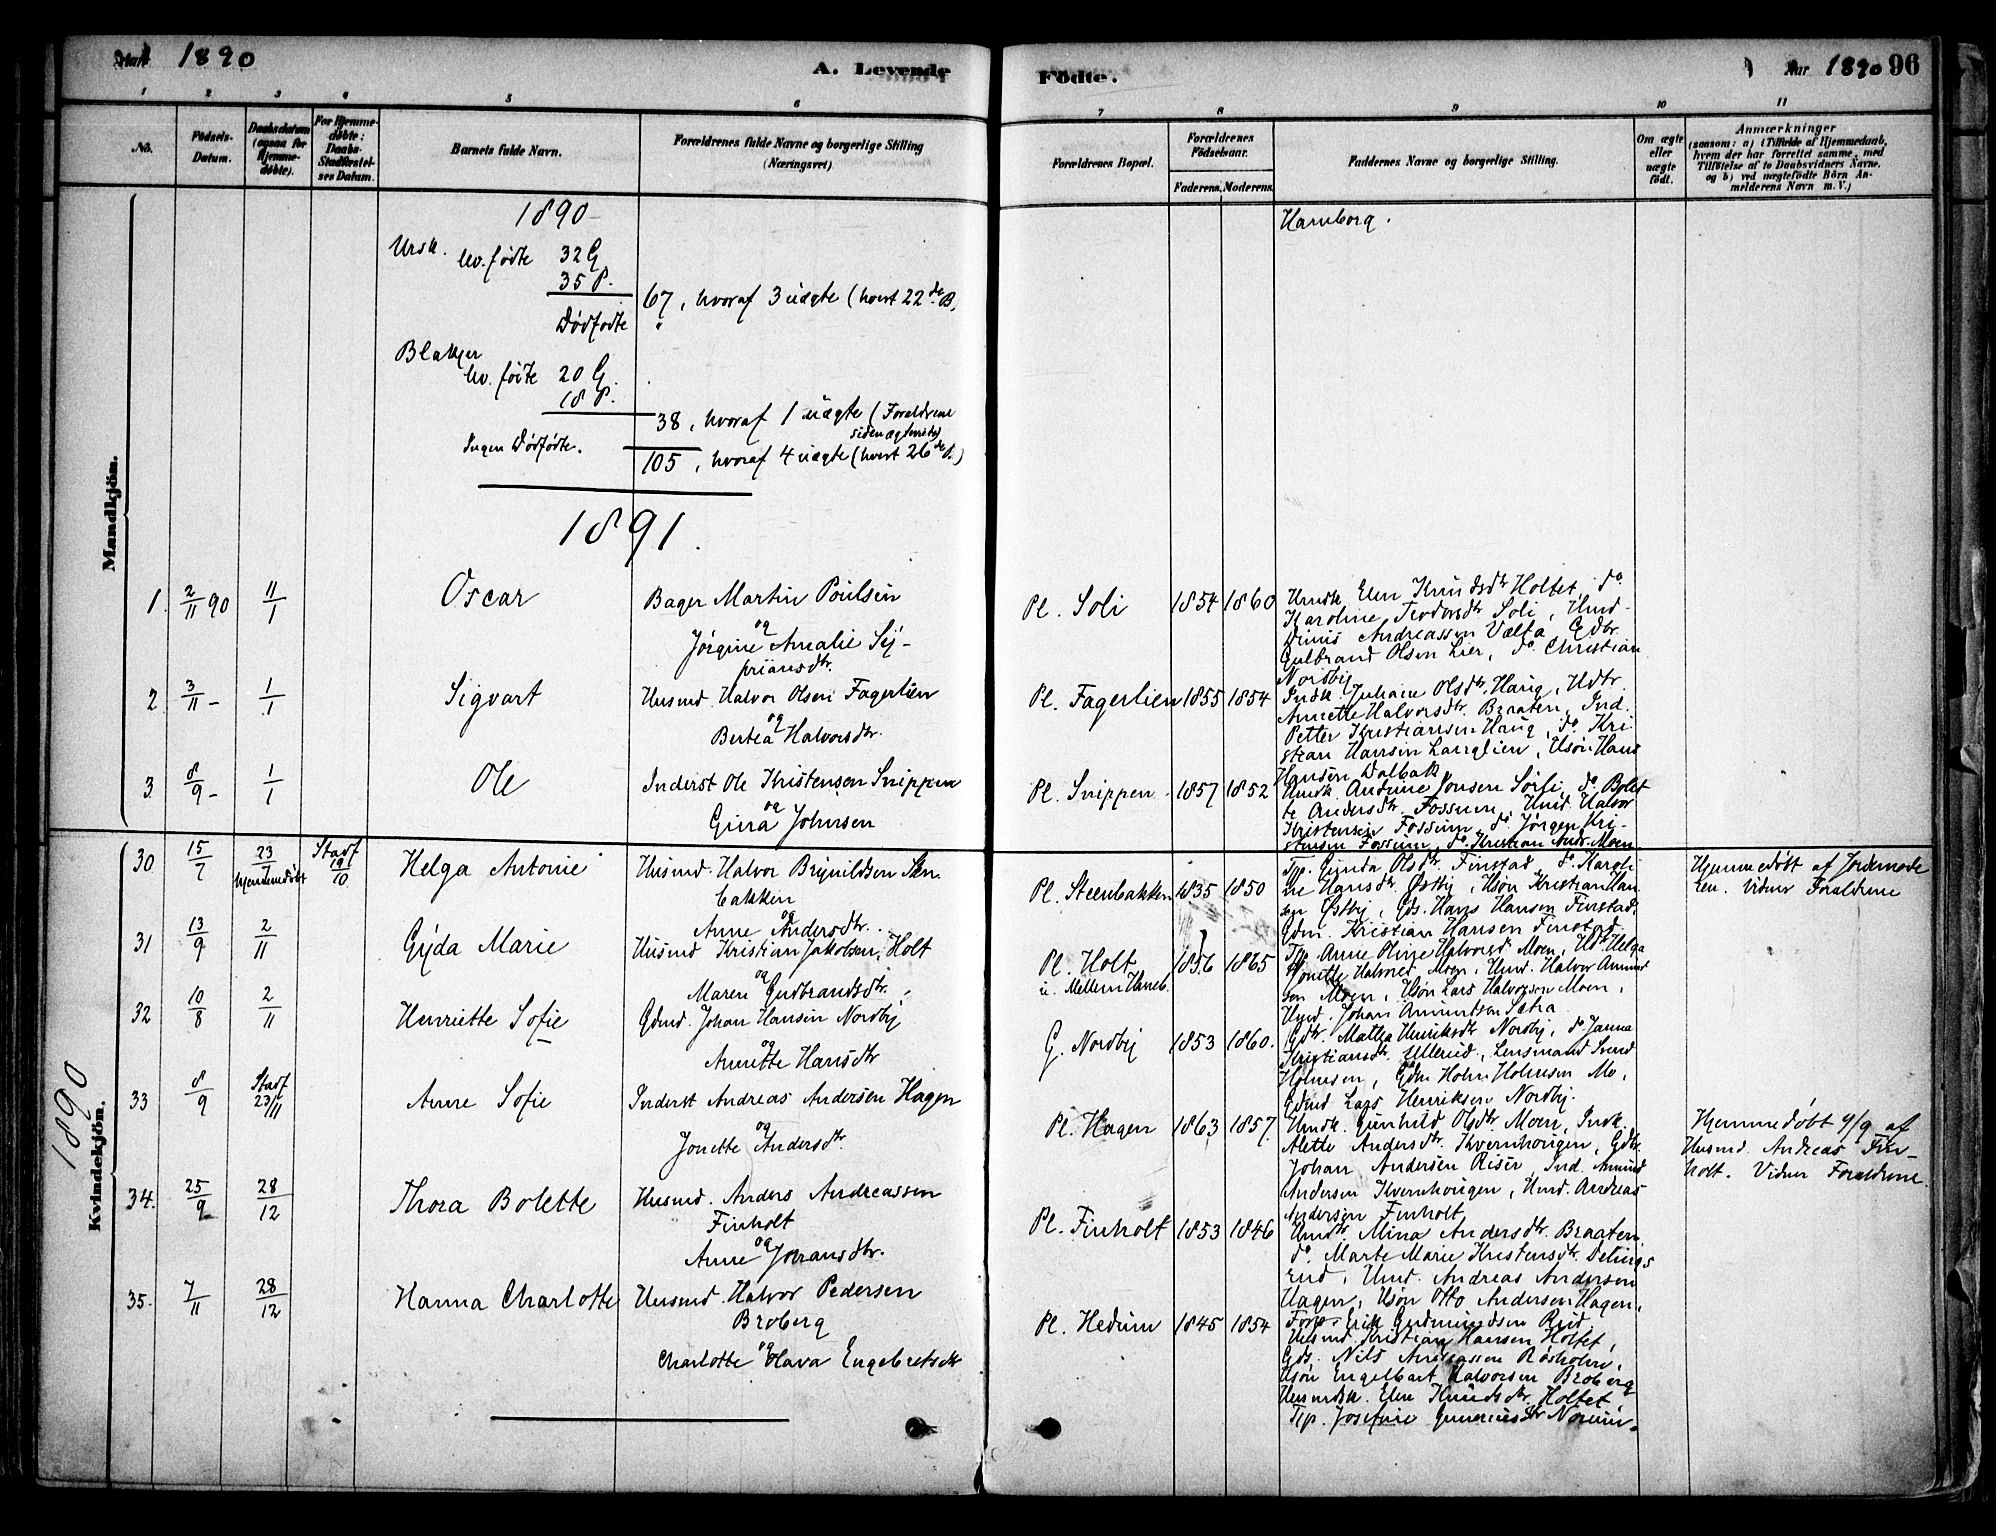 1890
A. Levende
Födte.
Aar 1890 96
1 2 3 4 5 6 7 8 9 10 11
No.
Födsels-
Datum.
Daabsdatum
(ogsaa for
Hjemme-
döbte).
For Hjemme-
döbte:
Daabs-
Stadfæstel-
ses Datum.
Barnets fulde Navn.
Forældrenes fulde Navne og borgerlige Stilling
(Næringsvei)
Forældrenes Bopæl.
Forældrenes
Födselsaar.
Faderens. Moderens.
Faddernes Navne og borgerlige Stilling.
Om ægte
eller
uægte
födt.
Anmærkninger
(saasom: a) i Tilfælde af Hjemmedaab,
hvem der har forrettet samme, med
Tilföielse af to Daabsvidners Navne.
og b) ved uægtefödte Börn An-
melderens Navn m. V.)
Mandkjön.
1890
Ursk. lev. fødte 32 G
35 P.
67, hvoraf 3 uægte (hvert 22de B.
Dødfødte "
Blakjer
lev. fødte 20 G.
18 P.
38, hvoraf 1 uægte (Forældrene
siden ægteviet)
Ingen Dødfødte.
105, hvoraf 4 uægte (hvert 26de B.)
Hamborg.
1891.
1. 2/11 90 11/1 Oscar
Bager Martin Poulsen
og
Jørgine Amalie Sy-
priansdtr.
Pl. Soli 1854 1860
Hmdk. Elen Knudsdtr Holtet, do
Karoline Teodorsdtr Soli, Hmd.
Dinis Andreassen Valta, Gdbr.
Gulbrand Olsen Lier, do Christian
Nordby
2 3/11 - 1/1 Sigvart
Husmd. Halvor Olsen Fagerlien
og
Bertea Halvorsdtr.
Pl. Fagerlien 1855 1854
Indk. Juliane Olsdtr. Haug, Hdtr.
Annette Halvorsdtr. Braaten, Ind.
Petter Kristiansen Haug, do Kri-
stian Hansen Langlien, Hsøn Hans
Hansen Dalbak
3 8/9 - 1/1 Ole
Inderst Ole Kristensen Snippen
og
Gina Johnsen
Pl. Snippen 1857 1852
Hmdk. Andrine Jonsen Sørli, do Bolet-
te Andersdtr. Fossum, Hmd. Halvor
Kristensen Fossum, do Jørgen Kri-
stensen Fossum, do Kristian Andr. Moen
1890
Kvindekjön.
30 15/7 23/7 Hjemmedøbt Stadf 19/10 Helga Antonie
Husmd. Halvor Brynildsen Sten-
bakken
og
Anne Andersdtr.
Pl. Steenbakken 1835 1850
Tjp. Gunda Olsdtr. Finstad, do Karoli-
ne Hansdtr. Østby, Hsøn Kristian Han-
sen Østby, Gds. Hans Hansen Finstad,
Gdm. Kristian Hansen Finstad.
Hjemmedøbt af Jordemode-
ren. Vidner Forældrene
31 13/9 2/11 Gyda Marie
Husmd Kristian Jakobsen Holt
og
Maren Gudbrandsdtr.
Pl. Holt 1856 1865
u. Mellem Haneb.
Tjp. Anne Oline Halvorsd Moen, Hdtr Helga
Jonette Halvorsd. Moen, Hmd. Halvor Amund-
sen Moen, Hsøn Lars Halvorsen Moen,
Hmd. Johan Amundsen Sætra
32 10/8 2/11 Henriette Sofie
Gdmd. Johan Hansen Nordby
og
Annette Hansdtr
G. Nordby 1853 1860.
Gdtr. Mathea Henriksdtr Nordby, do Janna
Kristiansdtr. Ullerud, Lensmand Svend
Holmsen, Gdm Holm Holmsen Mo,
Gdmd Lars Henriksen Nordby.
33 8/9 Stadf 23/11 Anne Sofie
Inderst Andreas Andersen Hagen
og
Jonette Andersdtr.
Pl. Hagen 1863 1857.
Hmdk. Gunhild Olsdtr. Moen, Indk.
Alette Andersdtr. Kvernhougen, Gdbr.
Johan Andersen Riser, Ind. Amund
Andersen Kvernhougen, Hmd. Andreas
Andersen Finholt
Hjemmedøbt 9/9 af
Husmd. Andreas Fin-
holt. Vidner Forældrene
34. 25/9 28/12 Thora Bolette
Husmd. Anders Andreassen
Finholt
og
Anne Joransdtr.
Pl. Finholt 1853 1846
Hmdtr. Mina Andersdtr. Braaten
do. Marte Marie Kristensdtr. Delings-
rud, Hmd. Andreas Andersen
Hagen, Hsøn Otto Andersen Hagen,
35. 7/11 28/12 Hanna Charlotte
Husmd. Halvor Pedersen
Broberg
og
Charlotte Olava Engebretsdtr
Pl. Hedum 1845 1854
Forp. Erik Gudmundsen Rud
Husmd. Kristian Hansen Holtet,
Gds. Nils Andreassen Røsholm,
Hsøn Engelbart Halvorsen Broberg
Husmdk. Elen Knudsdtr Holtet
Tjp. Josefine Gunneriusdtr Norum.